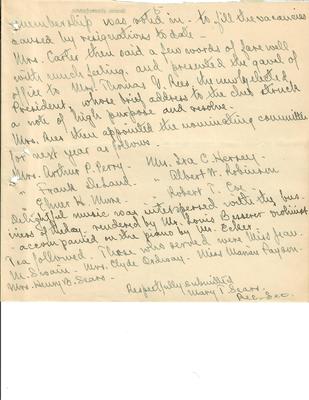 membership was voted on - to fill the vacancies
caused by resignations to date -
Mrs. Carter then said a few words of farewell
with much feeling, and presented the gavel of
office to Mrs. Thomas V. Rees, the newly elected
President, whose brief address to the club struck
a note of high purpose and resolve.
Mrs. Rees then appointed the nominating committee
for next year as follows -
Mrs. Arthur P. Perry - Mrs. Ira C. Hersey -
" Frank " Albert W. Robinson
" Elmer H. " Robert T. Coe
Delightful music was interspersed with the bus-
iness of the day, rendered by Mr. Louis Besserer violinist
- accompanied on the piano by Mr. Ecker.
Tea followed. Those who served were Miss Jean
M. - Mrs. Clyde Ordway - Miss Marion Payson -
Mrs. Henry B. Sears -
Respectfully submitted
Mary T. Sears -
Rec. Sec.